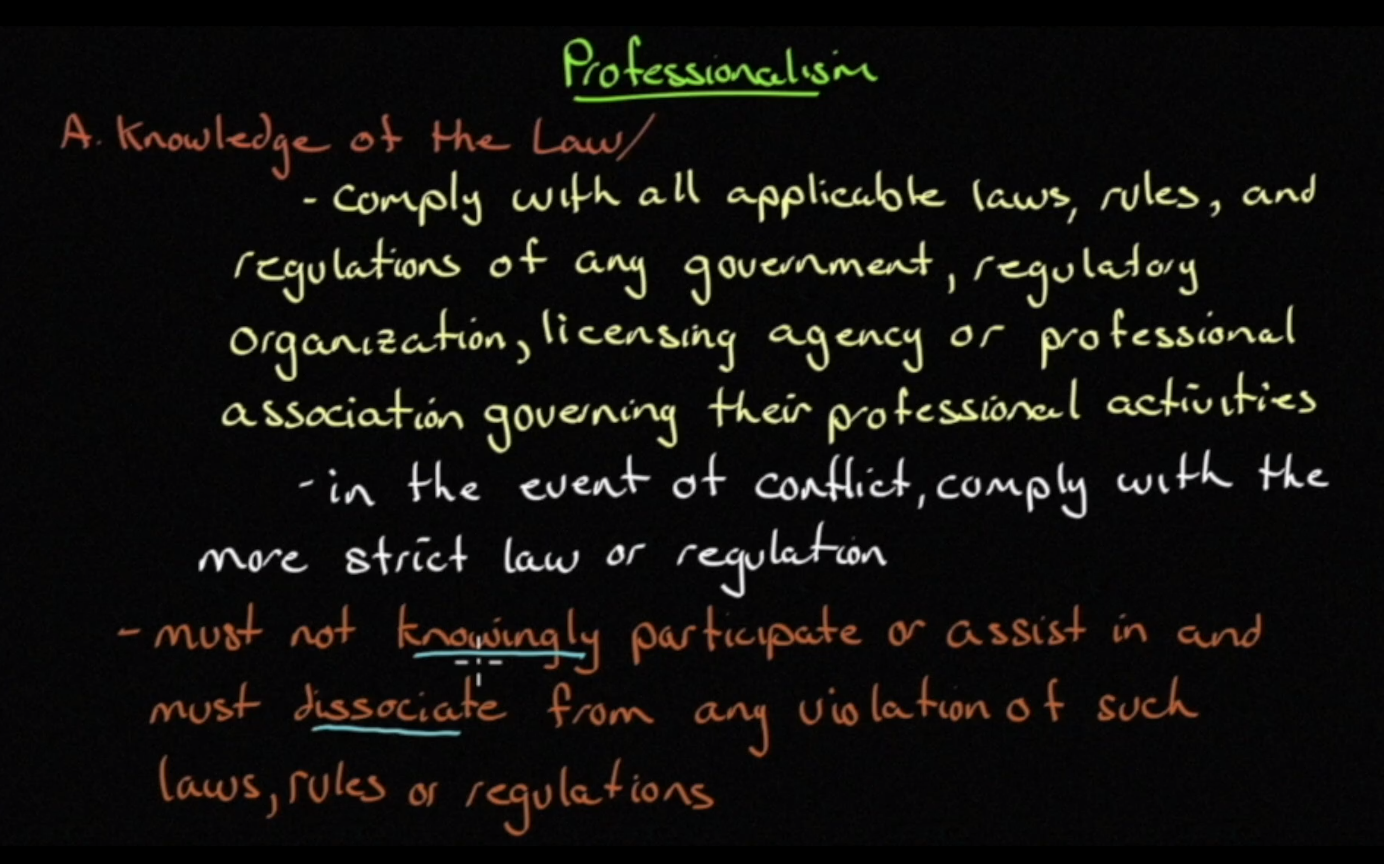 Professionalism
A. Knowledge of the Law/
- comply with all applicable laws, rules, and
regulations of any government, regulatory
organization, licensing agency or professional
association governing their professional activities
- in the event of conflict, comply with the
more strict law or regulation
- must not knowingly participate or assist in and
must dissociate from any violation of such
laws, rules or regulations